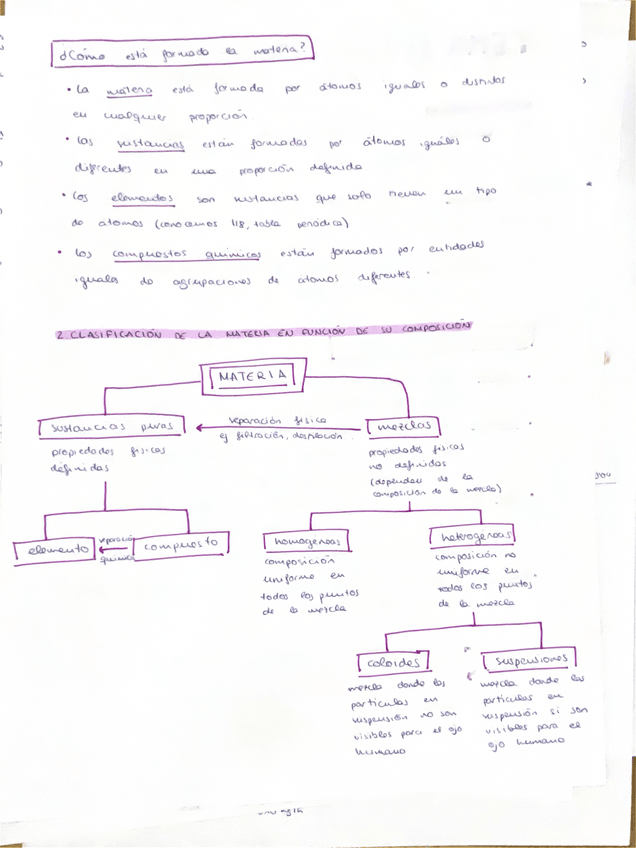 ¿Cómo está formada la materia?
• La materia está formada por átomos iguales o distintos
en cualquier proporción.
• Las sustancias están formadas por átomos iguales o
diferentes en una proporción definida
• Los elementos son sustancias que solo tienen un tipo
de átomos (conocemos 118, tabla periódica)
• Los compuestos químicos están formados por entidades
iguales de agrupaciones de átomos diferentes.
2. CLASIFICACIÓN DE LA MATERIA EN FUNCIÓN DE SU COMPOSICIÓN
MATERIA
sustancias puras
separación física
ej filtración, destilación
mezclas
propiedades físicas
definidas
propiedades físicas
no definidas
(dependen de la
composición de la mezcla)
elemento
separación
química
compuesto
homogéneas
heterogéneas
composición
uniforme en
todos los puntos
de la mezcla
composición no
uniforme en
todos los puntos
de la mezcla
coloides
suspensiones
mezcla donde las
partículas en
suspensión no son
visibles para el ojo
humano
mezcla donde las
partículas en
suspensión si son
visibles para el
ojo humano